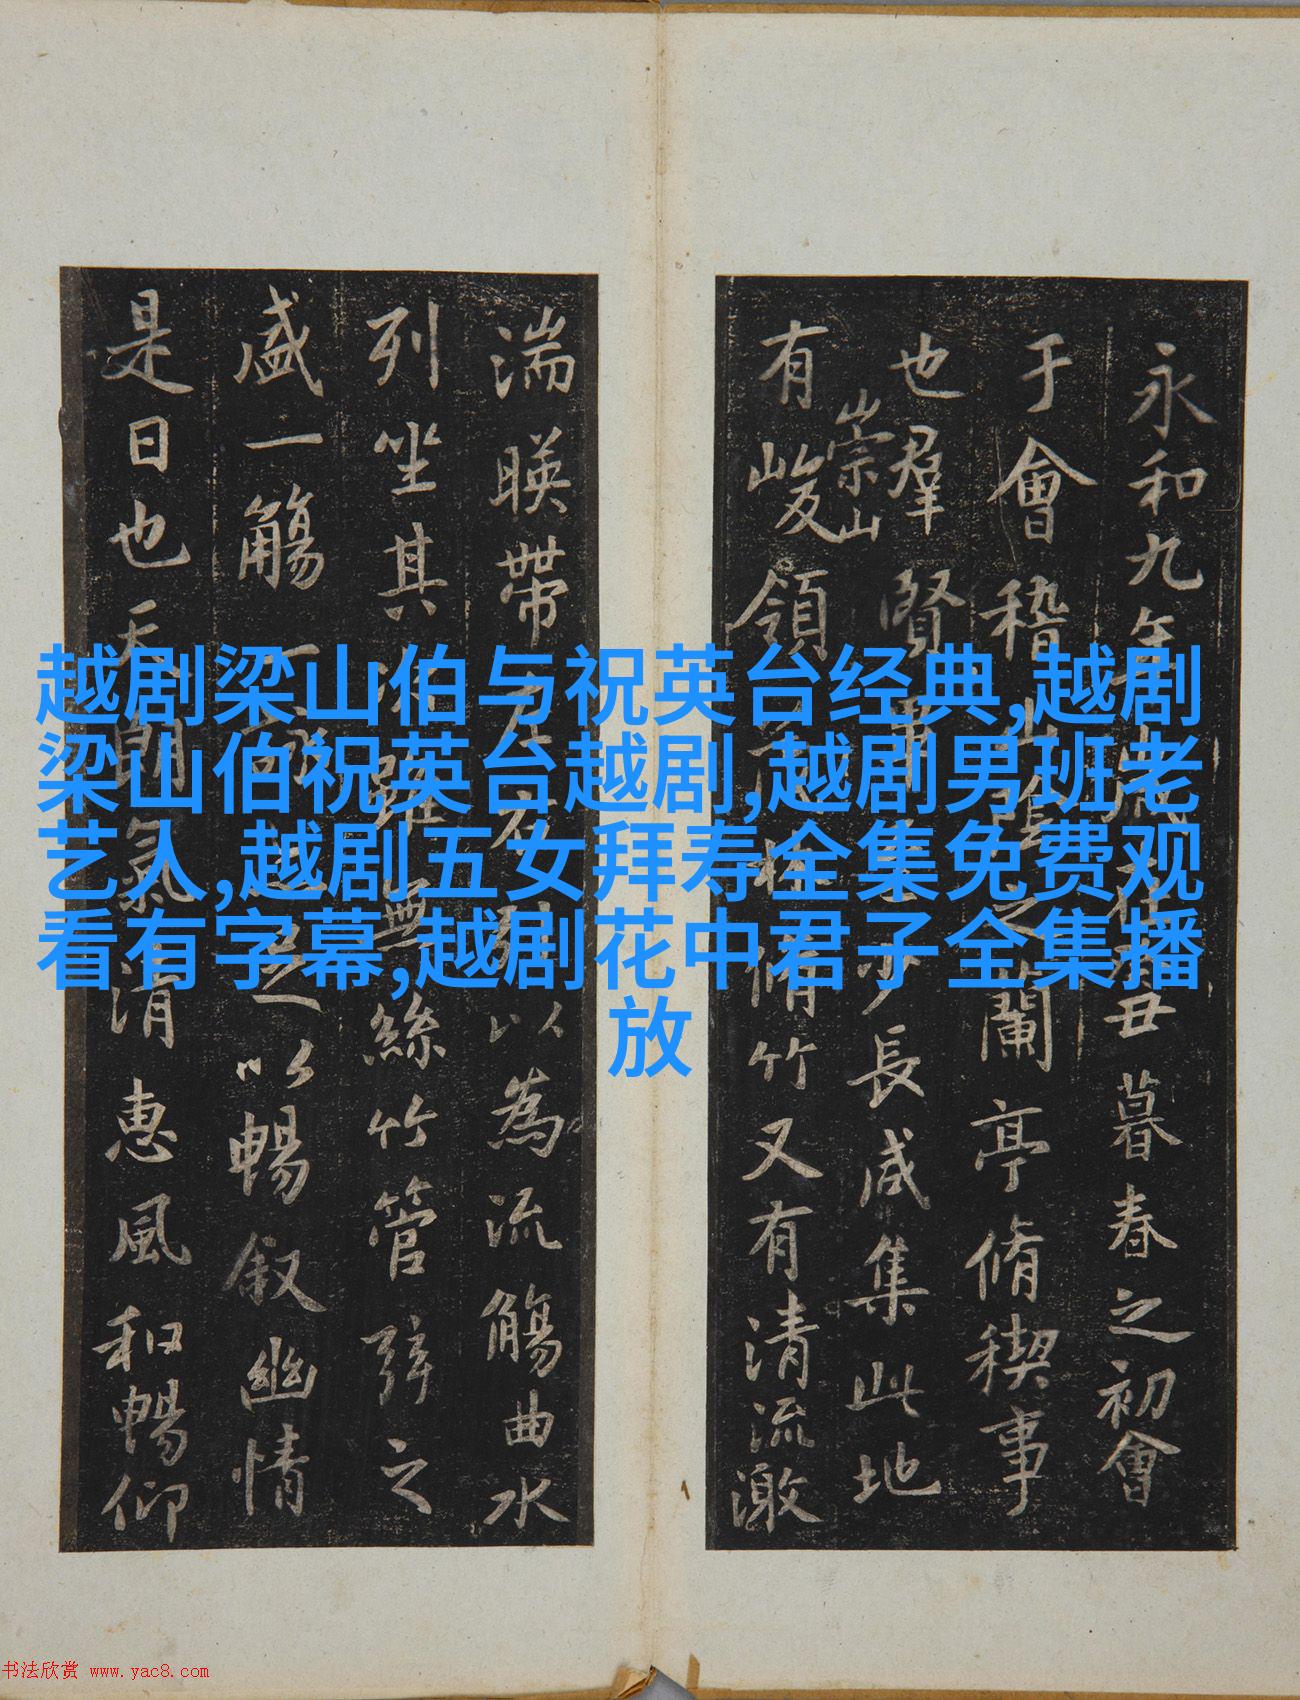 越剧梁山伯与祝英台经典,越剧
梁山伯祝英台越剧,越剧男班老
艺人,越剧五女拜寿全集免费观
看有字幕,越剧花中君子全集播
放
永和九年歲在癸丑暮春之初會
于會稽山陰之蘭亭脩稧事
也羣賢畢少長咸集此地
有崇山峻領林脩竹又有清流激
湍暎帶左右引以為流觴曲水
列坐其次雖無絲竹管弦之
盛一觴一詠足以暢叙幽情
是日也天朗氣清惠風和暢仰
书法欣赏 www.yac8.com